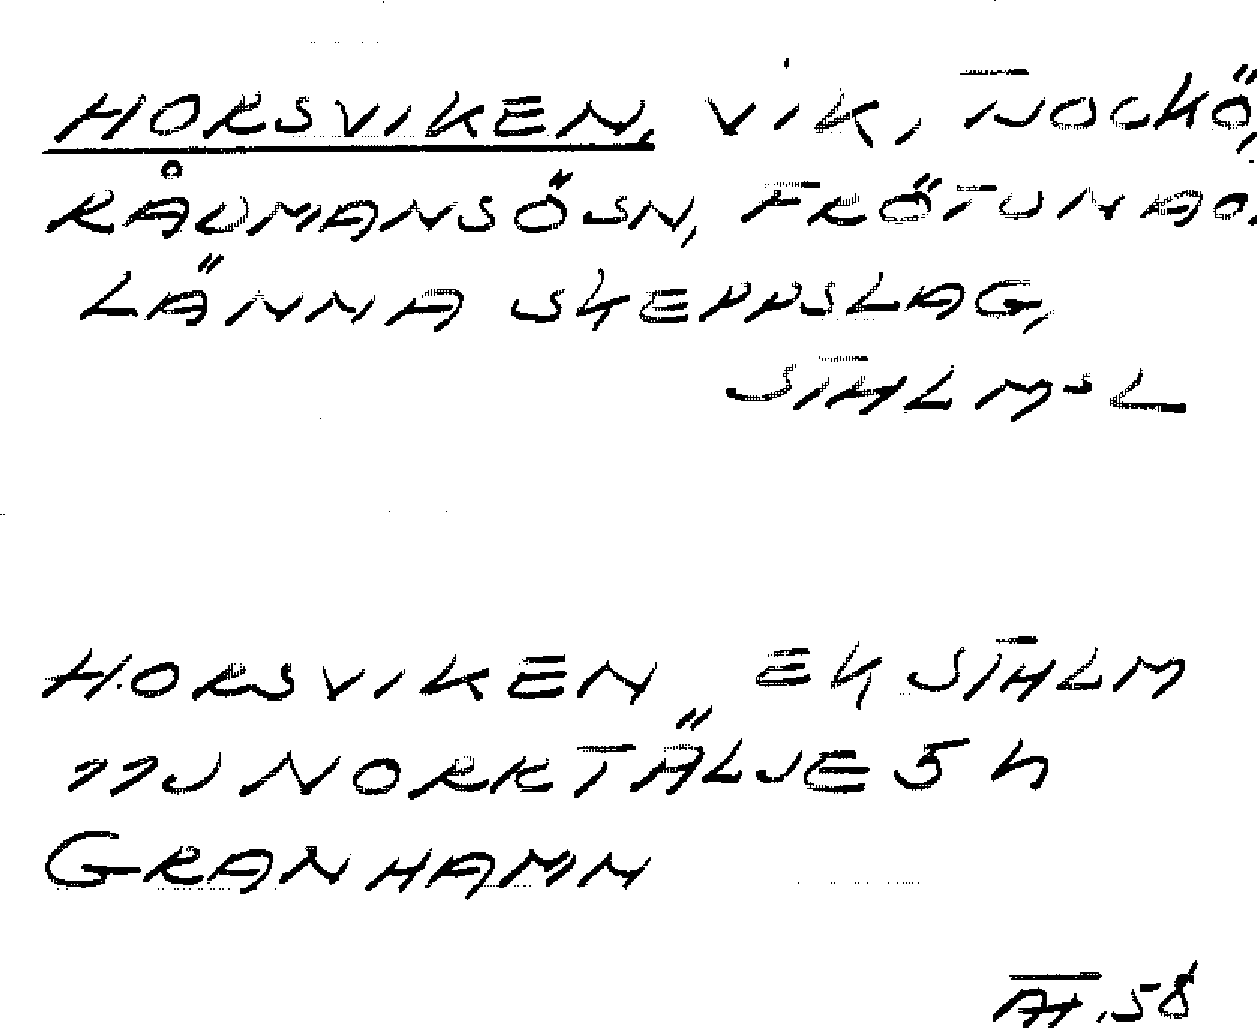 HORSVIKEN, VIK, TJOCKÖ,
RÅDMANSÖ SN, FRÖTUNA O.
LÄNNA SKEPPSLAG,
STHLMS L
HORSVIKEN EK STHLM
11J NORRTÄLJE 5 h
GRANHAMN
.58